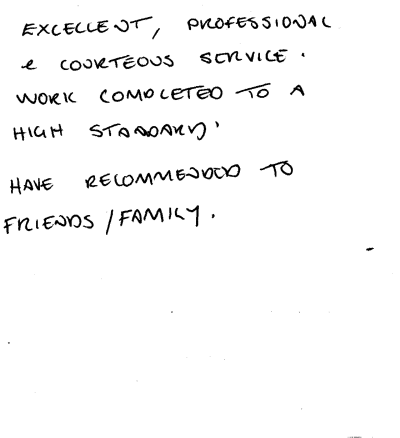 EXCELLENT, PROFESSIONAL
& COURTEOUS SERVICE.
WORK COMPLETED TO A
HIGH STANDARD.
HAVE RECOMMENDED TO
FRIENDS/FAMILY.